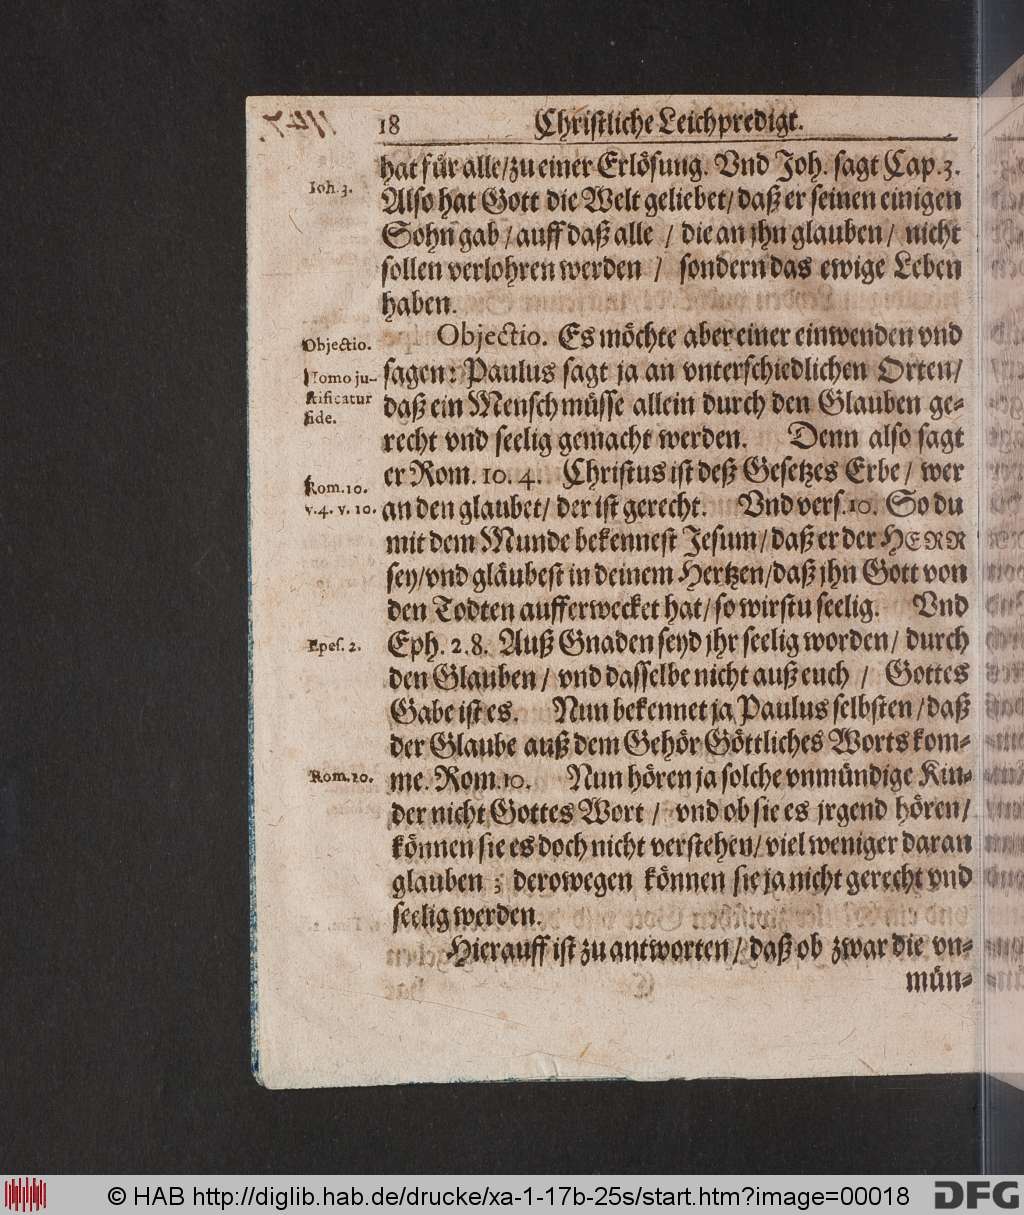 18 Christliche Leichpredigt.
hat für alle/zu einer Erlösung. Vnd Joh. sagt Cap.3.
Ioh.3.
Also hat Gott die Welt geliebet/ daß er seinen einigen
Sohn gab / auff daß alle / die an jhn glauben/ nicht
sollen verlohren werden / sondern das ewige Leben
haben.
Objectio. Es möchte aber einer einwenden vnd
Objectio.
sagen: Paulus sagt ja an vnterschiedlichen Orten/
Homo ju-
stificatur
fide.
daß ein Mensch müsse allein durch den Glauben ge-
recht vnd seelig gemacht werden. Denn also sagt
er Rom. 10. 4. Christus ist deß Gesetzes Erbe/ wer
Rom.10.
v.4. v. 10.
an den glaubet/ der ist gerecht. Vnd vers.10. So du
mit dem Munde bekennest Jesum/ daß er der HERR
sey/vnd gläubest in deinem Hertzen/daß jhn Gott von
den Todten aufferwecket hat/ so wirstu seelig. Vnd
Epes. 2.
Eph. 2.8. Auß Gnaden seyd jhr seelig worden/ durch
den Glauben / vnd dasselbe nicht auß euch / Gottes
Gabe ist es. Nun bekennet ja Paulus selbsten/daß
der Glaube auß dem Gehör Göttliches Worts kom-
Rom.10.
me. Rom.10. Nun hören ja solche vnmündige Kin-
der nicht Gottes Wort / vnd ob sie es jrgend hören/
können sie es doch nicht verstehen/ viel weniger daran
glauben ; derowegen können sie ja nicht gerecht vnd
seelig werden.
Hierauff ist zu antworten/ daß ob zwar die vn-
mün-
© HAB http://diglib.hab.de/drucke/xa-1-17b-25s/start.htm?image=00018
DFG